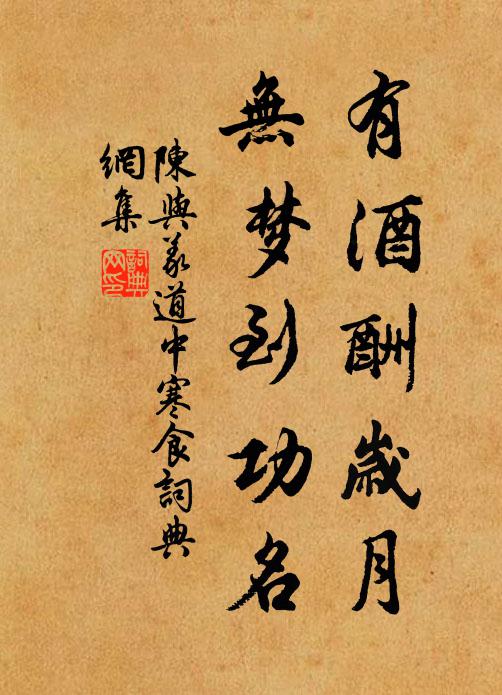 有酒酬歲月
無梦到功名
陳與義道中寒食詞典
網集
詞典
网印